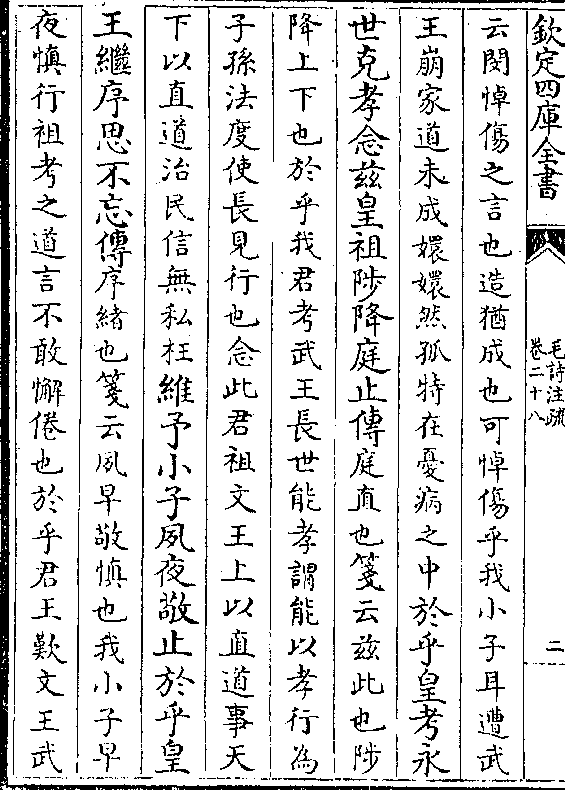 欽定四庫全書
毛詩注疏
卷二十八
二
云閔悼傷之言也造猶成也可悼傷乎我小子耳遭武
王崩家道未成嬛嬛然孤特在憂病之中於乎皇考永
世克孝念兹皇祖陟降庭止傳庭直也箋云兹此也陟
降上下也於乎我君考武王長世能孝謂能以孝行為
子孫法度使長見行也念此君祖文王上以直道事天
下以直道治民信無私枉維予小子夙夜敬止於乎皇
王繼序思不忘傳序緒也箋云夙早敬慎也我小子早
夜慎行祖考之道言不敢懈倦也於乎君王歎文王武